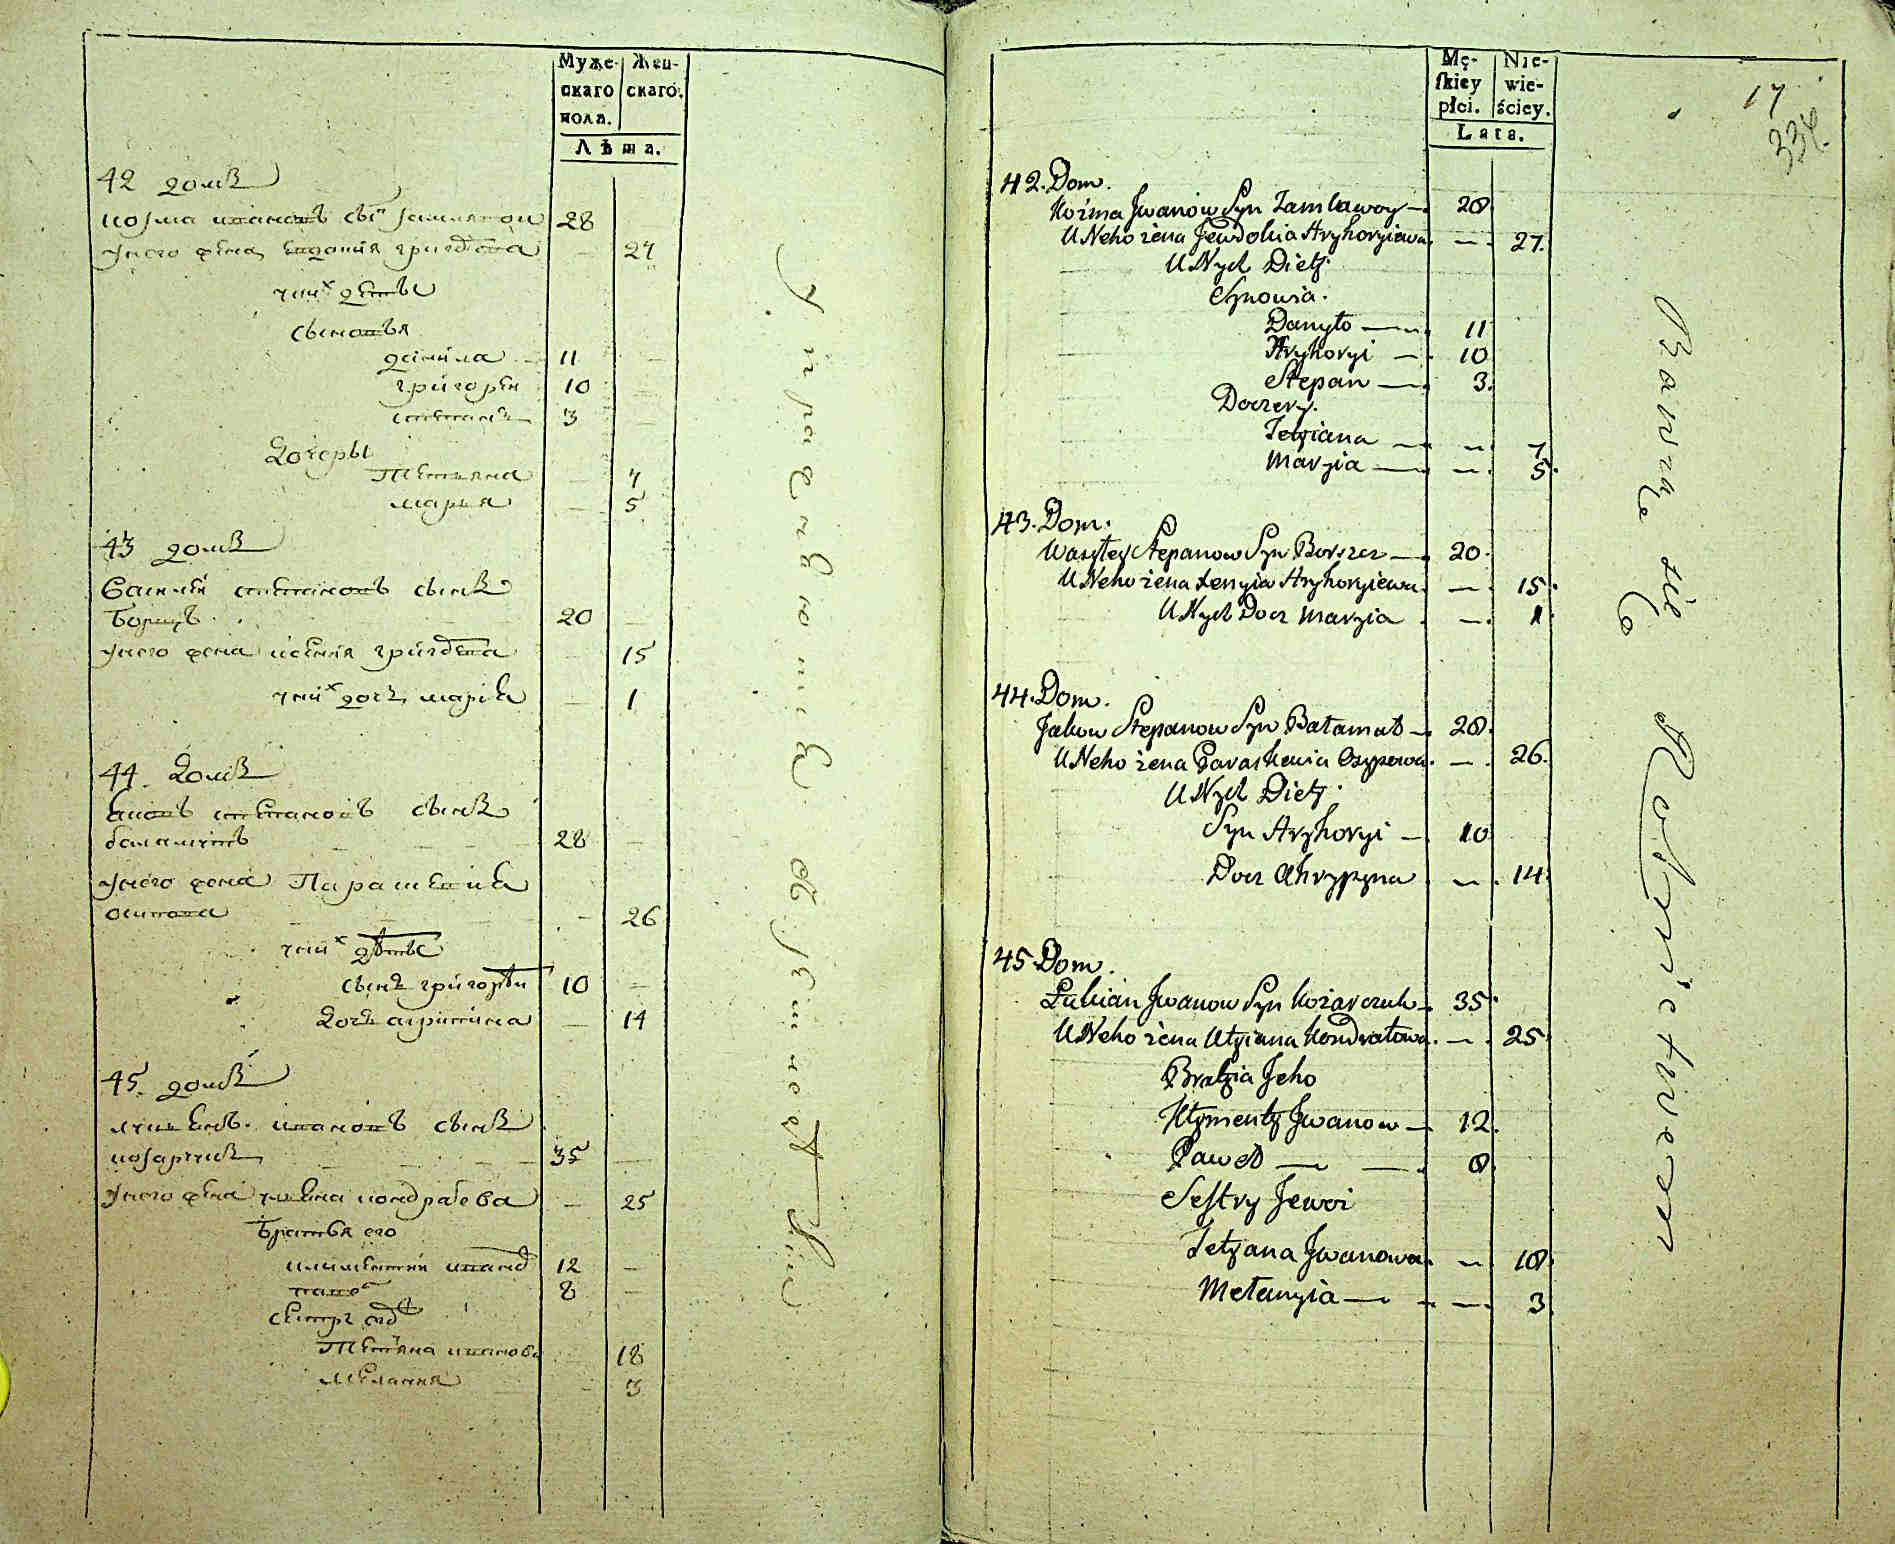 Муже-
скаго
пола.
Жен-
скаго.
Лѣта.
42 домъ
козма ивановъ сынъ
28
унего жена евдокия григорева
27
уних дети
сыновья
данила
11
григорей
10
степанъ
3
Дочеры
Тетьяна
7
марья
5
43 домъ
Василей степановъ сынъ
Борщъ
20
унего жена ксения григорева
15
уних дочь мария
1
44. Домъ
Яковъ степановъ сынъ
баламутъ
28
унего жена Парасковия
осипова
26
уних дети
сынъ григорей
10
Дочь агрипина
14
45. домъ
лукьянъ ивановъ сынъ
козарчукъ
35
унего жена улияна кондратева
25
Братья его
климентий иванов
12
павел
8
сестры ево
Тетяна иванова
18
мелания
3
Упражняются
Мę-
skiey
płci.
Nie-
wie-
ściey.
Lata.
17
42. Dom.
Kożma Jwanow Syn
28
U Neho żena Jewdokia Hryhoryiewa
27.
U Nych Dieti
Synowia.
Danyło
11
Hryhoryi
10
Stepan
3.
Doczery.
Tetyiana
7
Maryia
5.
43. Dom.
Wasyley Stepanow Syn Borszcz
20.
U Neho żena Xenyia Hryhoryiewa
15.
U Nych Docz Maryia
1.
44. Dom.
Jakow Stepanow Syn Bałamut
28.
U Neho żena Paraskewia Osypowa
26.
U Nych Dieti
Syn Hryhoryi
10
Docz Ahrypyna
14.
45 Dom.
Łukian Jwanow Syn Kożarczuk
35.
U Neho żena Ulyiana Kondratowa
25.
Bratia Jeho
Kłymenty Jwanow
12.
Paweł
8
Sestry Jewo
Tetyana Jwanowa
18.
Mełanyia
3
Bawią się Rolnictwem